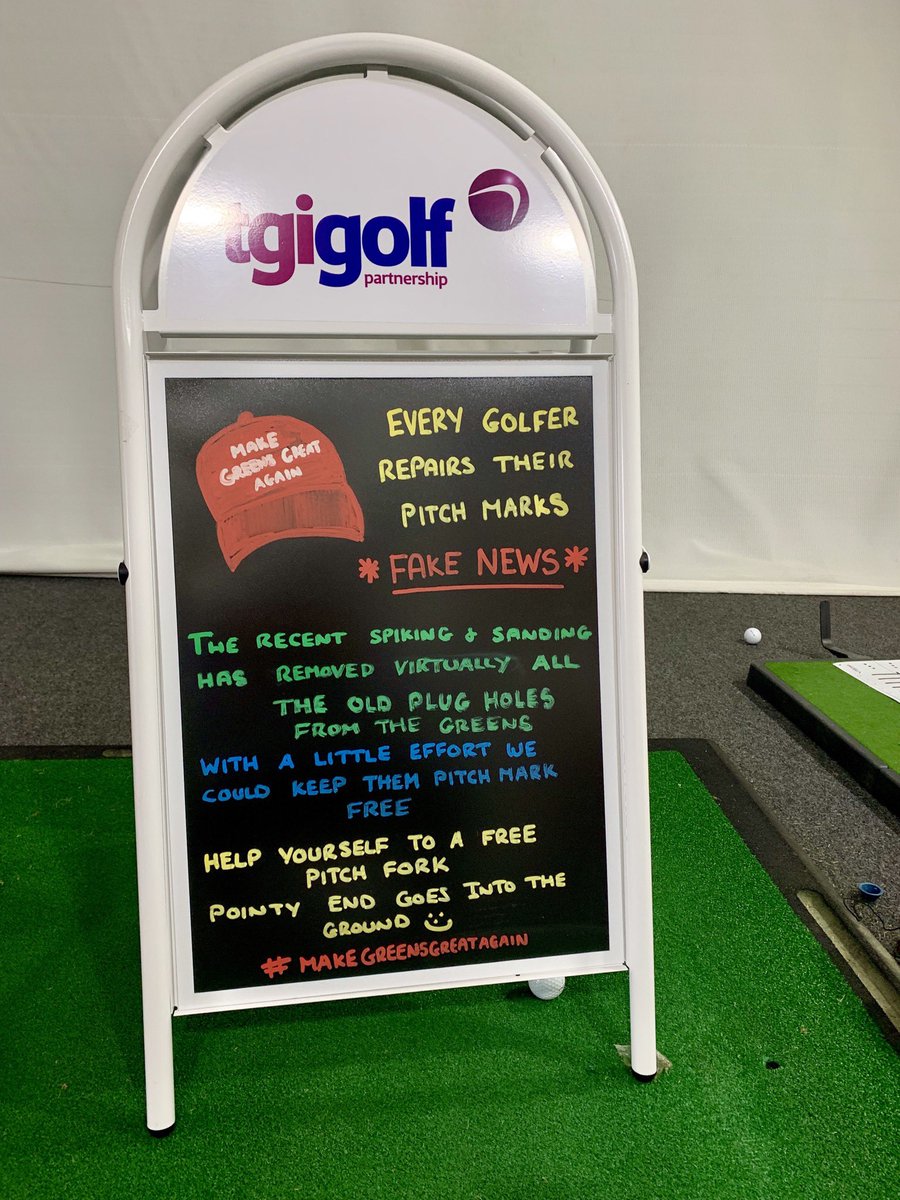 tgigolf
partnership
MAKE
GREENS GREAT
AGAIN
EVERY GOLFER
REPAIRS THEIR
PITCH MARKS
*FAKE NEWS*
THE RECENT SPIKING & SANDING
HAS REMOVED VIRTUALLY ALL
THE OLD PLUG HOLES
FROM THE GREENS
WITH A LITTLE EFFORT WE
COULD KEEP THEM PITCH MARK
FREE
HELP YOURSELF TO A FREE
PITCH FORK
POINTY END GOES INTO THE
GROUND
#MAKEGREENSGREATAGAIN